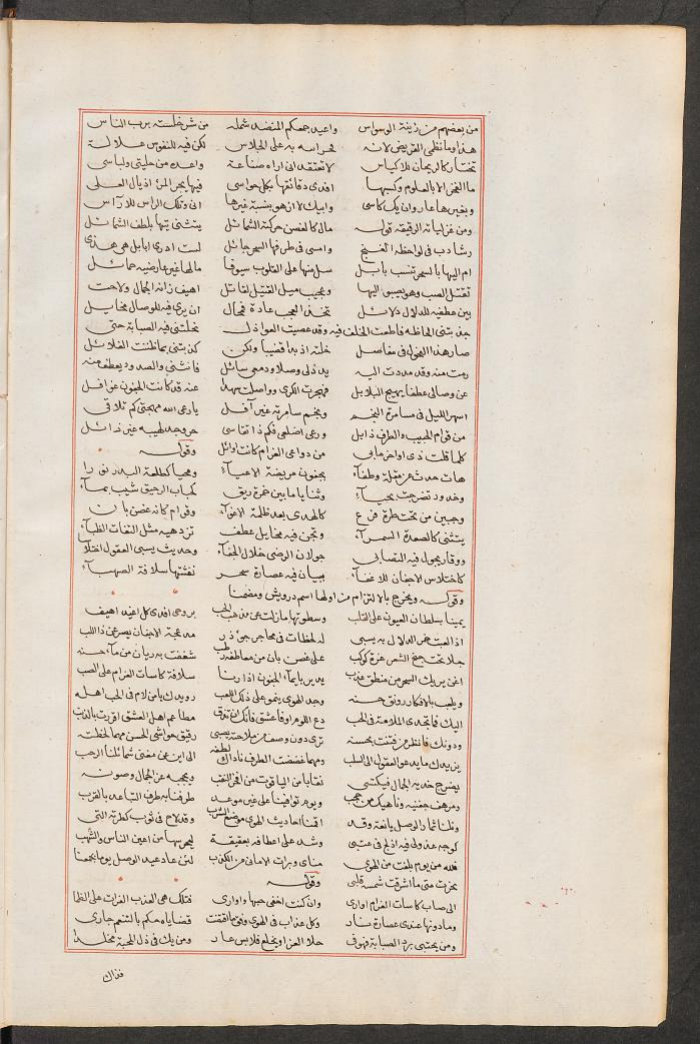 من بعضهم من زينة الوسواس واعيد جمعكم المنضد شمله من شر خلسته برب الناس
هذا وما نظمي القريض لانه حراسه به على الجلاس لكن فيه للنفوس علالة
تختار كالريحان للاكياس لا تعتقد انى اراه صناعة واعده من حليتى ولباسى
ما الفخر الا بالعلوم وكسبها افدى دقائقها بكل حواسى فيها يجر المرء اذيال العلى
وبغيرها عار وان يك كاسى وابيك لا ازهو بنسبة غيرها انى وتلك الراس للارآس
ومن غزلياته الرقيقة قوله مال كالغصن حركته الشمائل يتثنى تيها بلطف الشمائل
رشا دب فى لواحظه الغنج وامسى فى طرفها السحر جائل لست ادرى ابابل هى هذى
ام اليها بالسحر تنسب بابل سل منها على القلوب سيوفا مالها غير عارضيه حمائل
تقتل الصب وهو يصبو اليها وعجيب ميل القتيل لقاتل اهيف زانه الجمال ولاحت
بين عطفيه للدلال دلائل تخذ العجب عادة فمحال ان يرى فيه للوصال مخايل
جذبتنى الحاظه فاطعت الحلف فيه وقد عصيت العواذل خلتنى فيه الصبابة حتى
صار هذا الهوى فى مفاصل خلته اذ بدا قضيبا ولكن كذبتنى بما ظننت الغلائل
رمت منه وقد مددت اليه يد ذلى وصلا ودمعى سائل فانثنى والصدود يعطف منه
عن وصالى عطفا يهيج البلابل فهجرت الكرى وواصلت سهدا عنه قد كانت الجفون غوافل
اسهر الليل فى مسامرة النجم وبنجم سامرته غير آفل يا رعى الله مهجتى كم تلاقى
من قوام الحبيب والطرف ذابل ورعى اضلعى فكم ذا تقاسى حر وجد لهيبه غير زائل
كلما قلت ذى اواخر مابى من دواعى الغرام كانت اوائل وقوله
هات حدث عن مقلة وطفآء بجفون مريضة الاعيآء ومحيا كطلعة البدر زين را
وخدود تضرجت بحيآء وثنايا ما بين خمرة ريق كحباب الرحيق شيب بمآء
وجبين من تحت طرة فرع كالهدى بعد ظلمة الاغوآء وقوام كانه غصن بان
يتثنى كالصعدة السمرآء وتجن فيه مخايل عطف تزدهيه مثل التفات الظبآء
ووقار يجول فيه التصابى جولان الرضى خلال الجفآء وحديث يسبى العقول اختلا
كاختلاس الاجفان للاغفآء ببيان فيه عصارة سحر نفثتها سلافة الصهبآء
وقوله ويخرج بالالتزام من اولها اسم درويش ومضمنا
بروحى افدى كل اغيد اهيف يمينا بسلطان العيون على القلب وسطوتها ما زلت عن مذهب الحب
مدعجة الاجفان يصرعن ذا اللب اذ العبت خمر الدلال به يسبى له لحظات فى محاجر جؤذر
شغفت به ريان من مآء حسنه جلا تحت جنح الشعر غرة كوكب على غصن بان من معاطفه رطب
سلافة كاسات الغرام على الصب اغن يريك السحر من منطق عذب يدير بايمآء الجفون اذا رنا
رويدك يا من لام فى الحب اهله ويلعب بالافكار رونق حسنه وجد الهوى ينمو على ذلك اللعب
مطاعم اهل العشق اقررت بالذنب اليك فما تجدى الملامة فى الحب دع اللوم او فاعشق فانك ان تذق
رقيق حواشى الحسن مهما لحظته ودونك فانظر من فتنت بحسنه ترى دون وصف من ملاحته يسبى
الى اين عن مغنى شمائلنا الرحب يزيدك ما يدعو العقول الى السلب ومهما غضضت الطرف ناداك لطفه
ويحجبه عن الجمال وصونه يضرج خديه الجمال فيكتسى نقابا من الياقوت من افخر النقب
طرقنا به طرف التباعد بالقرب ومرهف جفنيه وناهيك من حجب ويوم توافينا على غير موعد
وقد لاح فى ثوب كطرته التى ونلنا ثمار الوصل يانعة وقد اقمنا احاديث الهوى موضع الشرب
ليحرسها من اعين الناس والشهب كوجه عذولى فيه اذ لج فى عتبى وشد على اعطافه بعقيقة
لئن عاد عيد الوصل يوما يجمعنا فلله من يوم بلغت من الهوى مناى وبرات الامانى من الكذب
نحرت متى ما اشرقت شمسه قلبى وقوله
فتلك هى العذب الفرات على الظما الى صاب كاسات الغرام اوارى وان كنت اخفى حبها واوارى
قضاياه حكم بالتنعم جارى وما دونها عندى عصارة نار وكل عذاب فى الهوى وفى ما اقتنت
ومن يك فى ذل المحبة مخلدا ومن يحتبى برد الصبابة فهو فى حلا العز او يخلع فلابس عار
فذاك